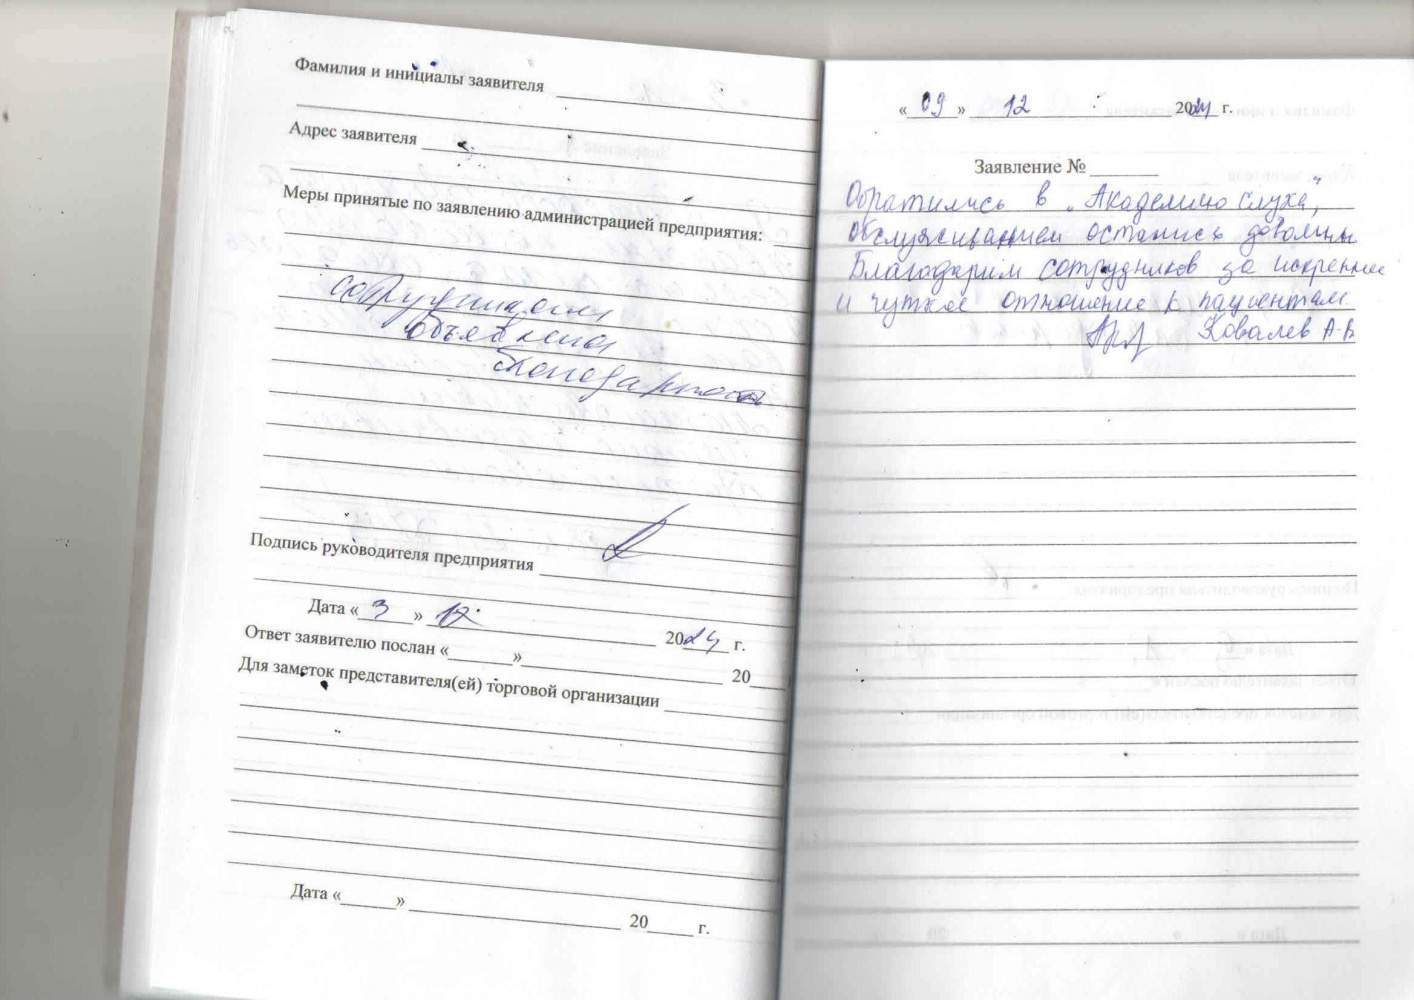 Фамилия и инициалы заявителя
Адрес заявителя
Меры принятые по заявлению администрацией предприятия:
сотрудникам
объявлена
благодарность
Подпись руководителя предприятия
Дата « 3 » 12 2024 г.
Ответ заявителю послан « » 20
Для заметок представителя(ей) торговой организации
Дата « » 20 г.
« 09 » 12 2024 г.
Заявление №
Обратились в "Академию слуха",
обслуживанием остались довольны
Благодарим сотрудников за искреннее
и чуткое отношение к пациентам.
Ковалев А.В